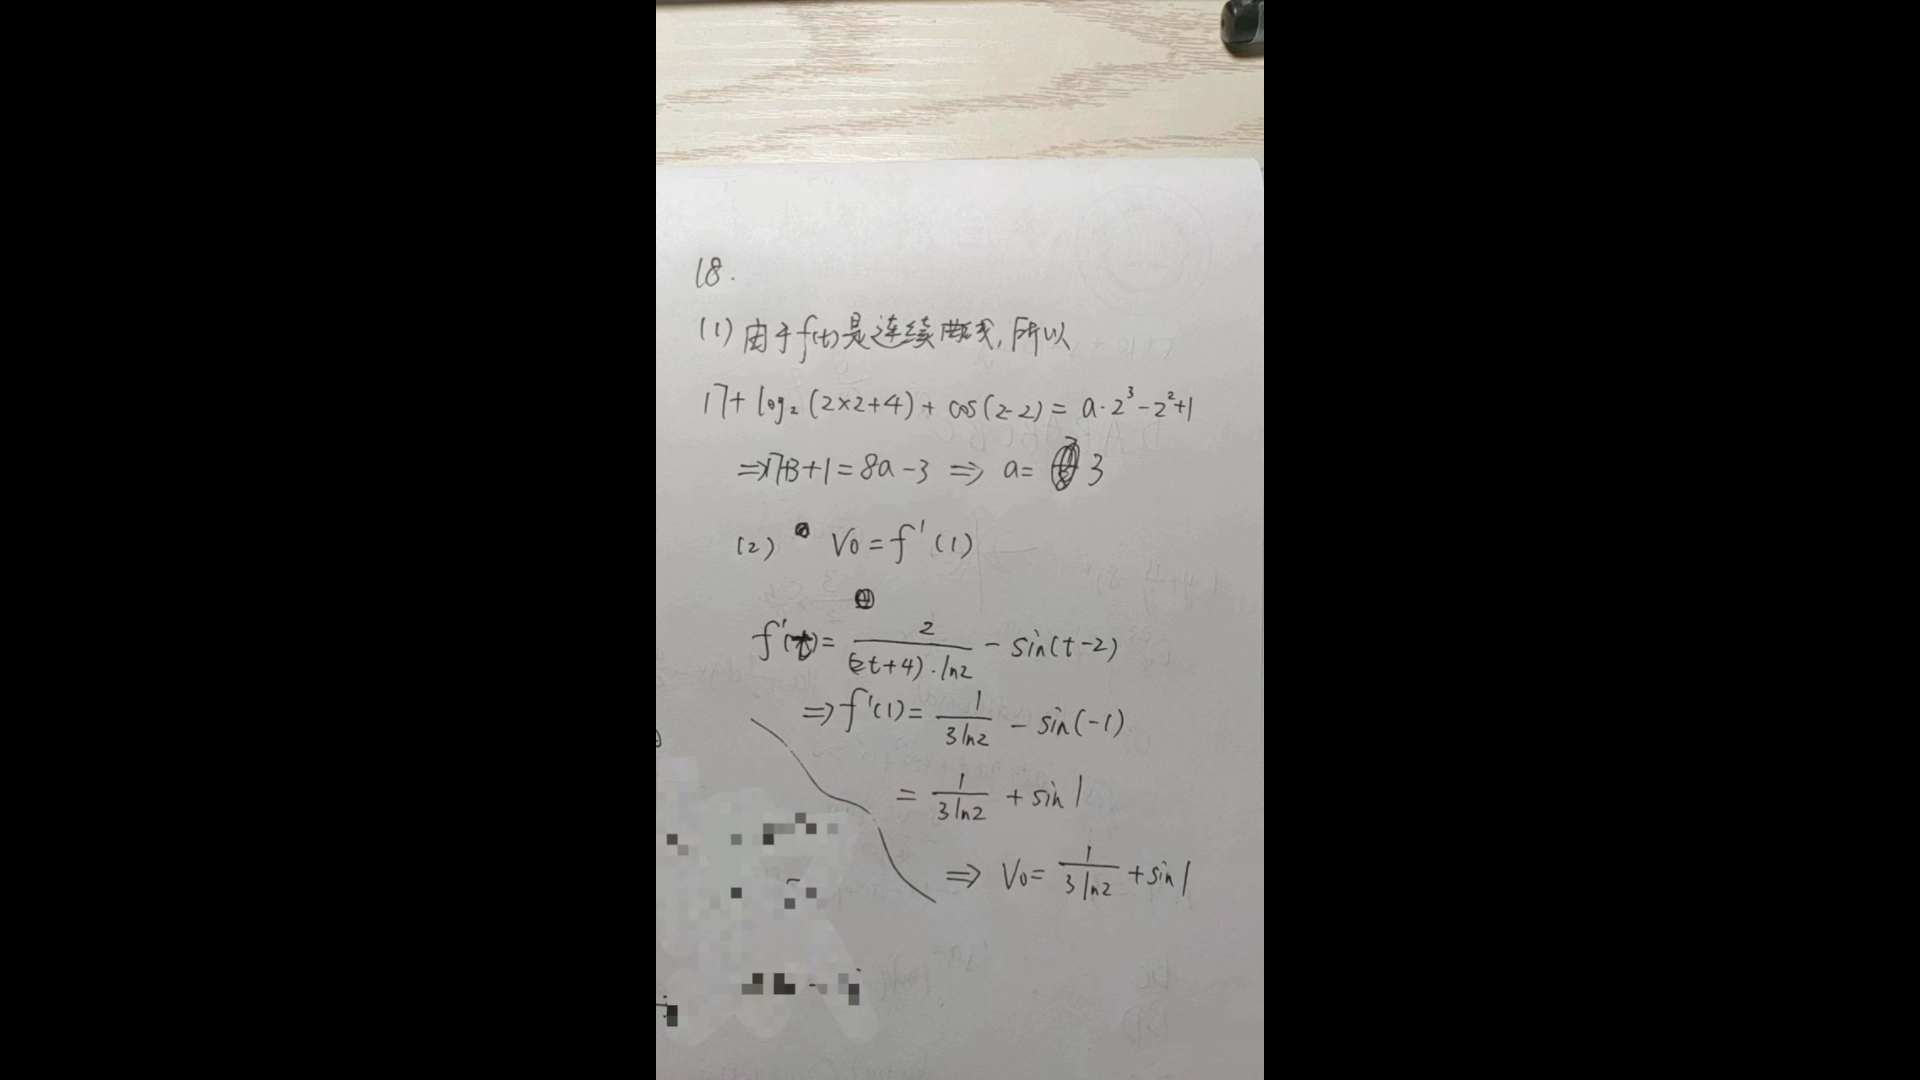 18.
(1) 由于f(t)是连续曲线,所以
17+log₂(2×2+4)+cos(2-2)=a·2³-2²+1
⇒17+3+1=8a-3 ⇒ a= 3
(2) V0=f'(1)
f'(t)= 2/((2t+4)·ln2) - sin(t-2)
⇒f'(1)= 1/(3ln2) - sin(-1)
= 1/(3ln2) + sin1
⇒ V0= 1/(3ln2) + sin1